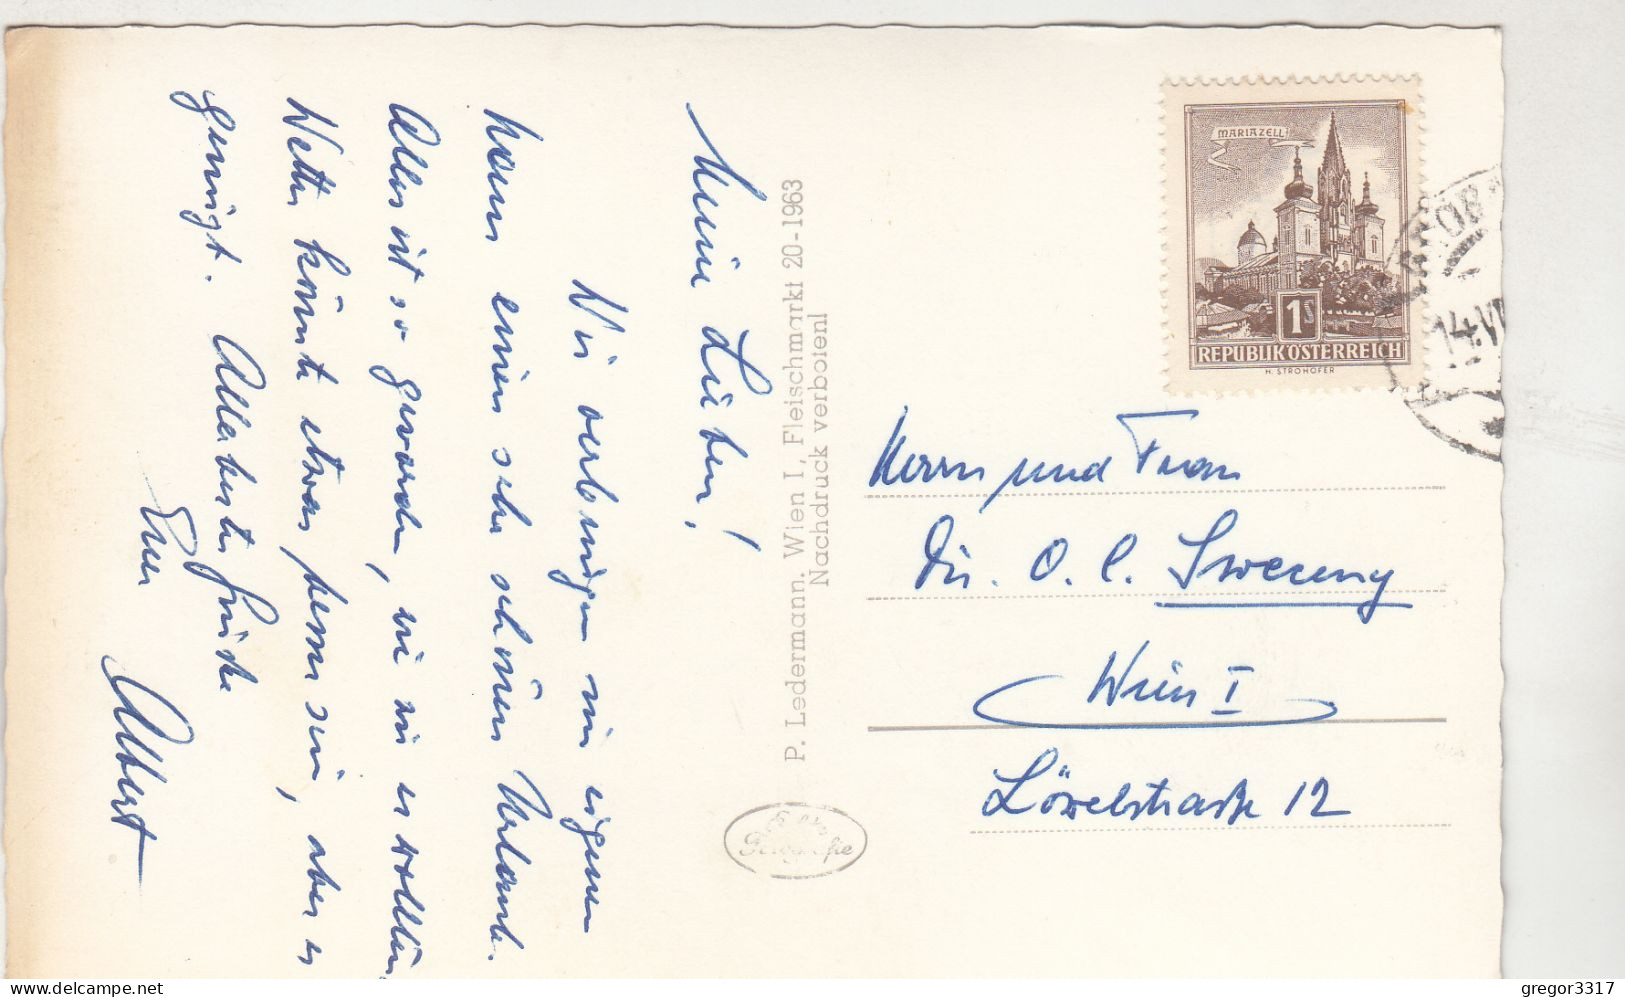 Meine Lieben!
Wir verbringen im eigenen
Haus einen sehr schönen Urlaub.
Alles ist so geworden, wie wir es wollten,
Wetter könnte etwas besser sein, aber es
genügt. Allerbeste Grüße
Euer
Albert
P. Ledermann, Wien I, Fleischmarkt 20-1963
Nachdruck verboten!
MARIAZELL
1S
REPUBLIK ÖSTERREICH
H. STROHOFER
14.VII
Herrn und Frau
Dir. O. C.
Wien I
Löwelstraße 12
delcampe.net
gregor3317